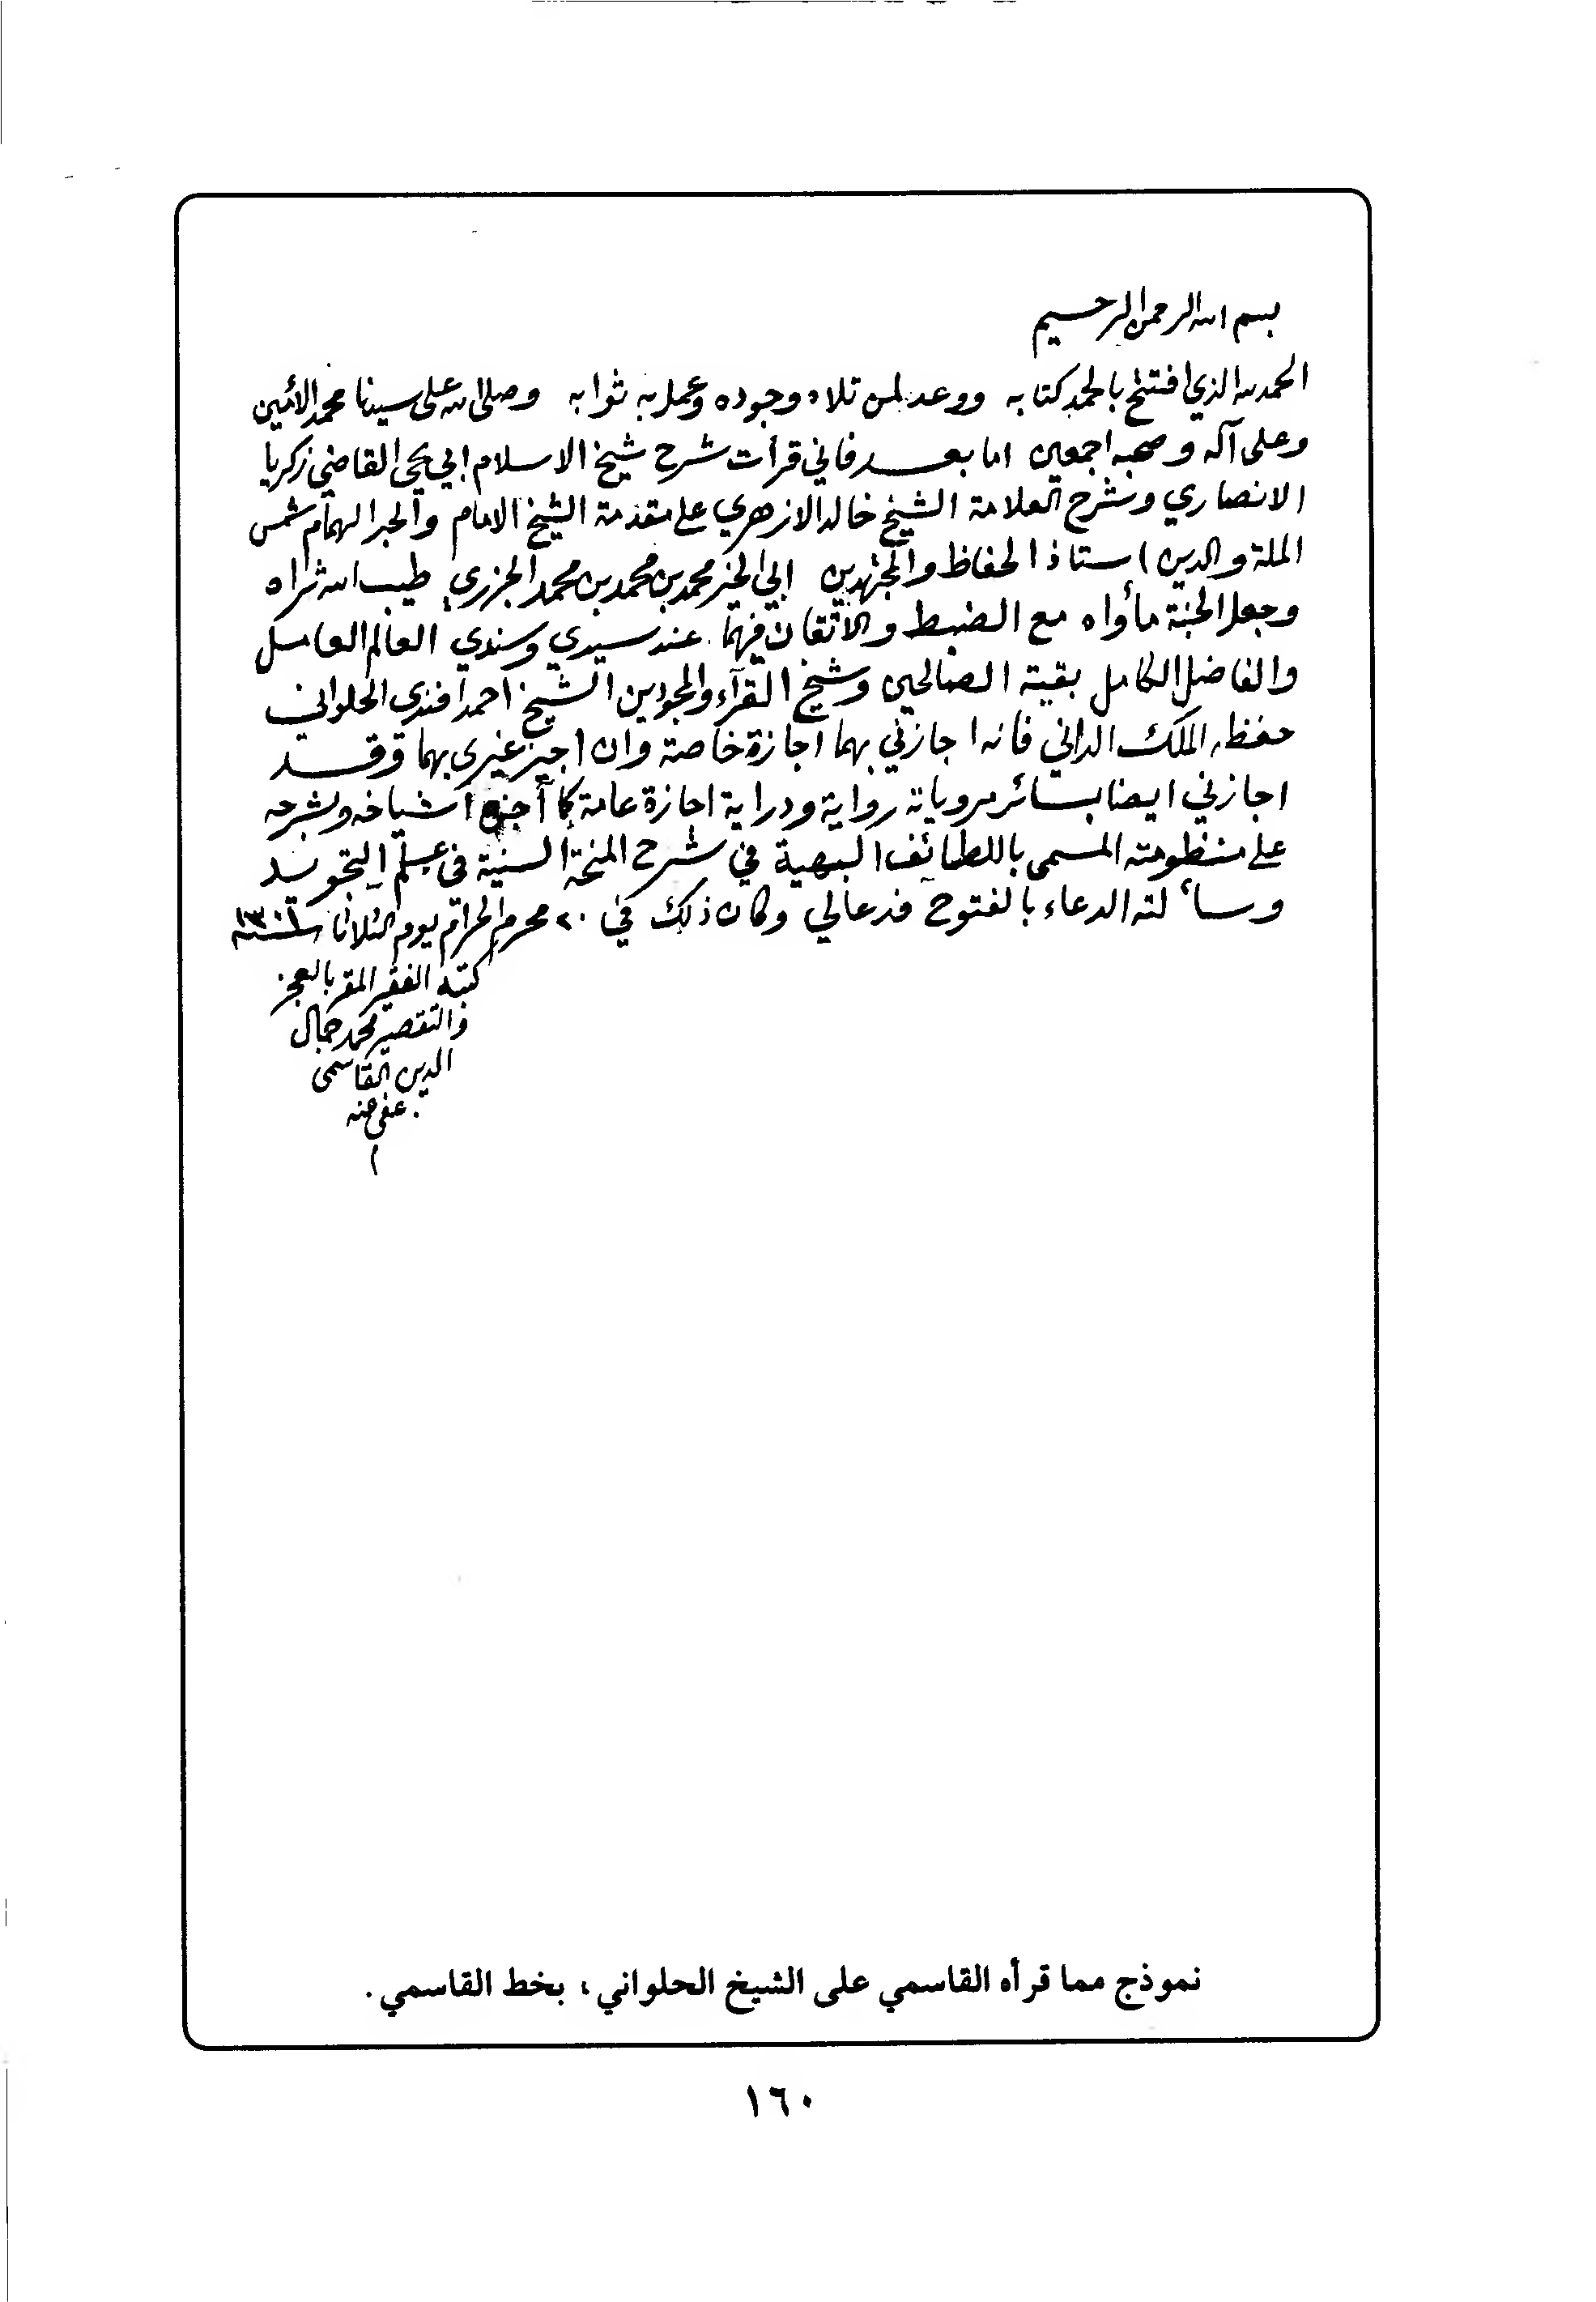 بسم الله الرحمن الرحيم
الحمد لله الذي افتتح بالحمد كتابه ووعد لمن تلاه وجوده وعمل به ثوابه وصلى الله على سيدنا محمد الأمين
وعلى آله وصحبه اجمعين اما بعد فاني قرأت شرح شيخ الاسلام ابي يحيى القاضي زكريا
الانصاري وشرح العلامة الشيخ خالد الازهري على مقدمة الشيخ الامام والحبر الهمام شمس
الملة والدين استاذ الحفاظ والمجتهدين ابي الخير محمد بن محمد بن محمد الجزري طيب الله ثراه
وجعل الجنة مأواه مع الضبط والاتقان فيهما عند سيدي وسندي العالم العامل
والفاضل الكامل بقية الصالحين وشيخ القرآء والمجودين الشيخ احمد افندي الحلواني
حفظه الملك الداني فانه اجازني بهما اجازة خاصة وان اجيز غيري بهما وقد
اجازني ايضا بسائر مروياته رواية ودراية اجازة عامة كما أشياخه وبشرحه
على منظومته المسمى باللطائف البهية في شرح المنحة السنية في علم التجويد
وسألته الدعاء بالفتوح فدعالي وكان ذلك في ٢٠ محرم الحرام يوم الثلاثا سنة
كتبه الفقير المقر بالعجز
والتقصير محمد جمال
الدين القاسمي
عفي عنه
نموذج مما قرأه القاسمي على الشيخ الحلواني ، بخط القاسمي .
١٦٠